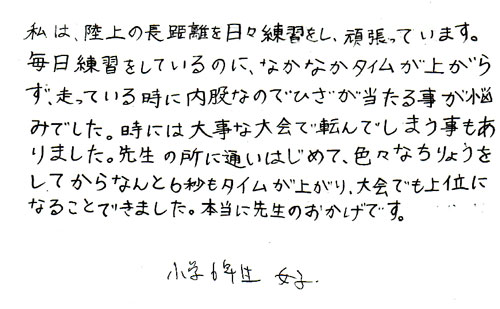 私は、陸上の長距離を日々練習をし、頑張っています。
毎日練習をしているのに、なかなかタイムが上がら
ず、走っている時に内股なのでひざが当たる事が悩
みでした。時には大事な大会で転んでしまう事もあ
りました。先生の所に通いはじめて、色々なちりょうを
してからなんと6秒もタイムが上がり、大会でも上位に
なることできました。本当に先生のおかげです。
小学6年生 女子.